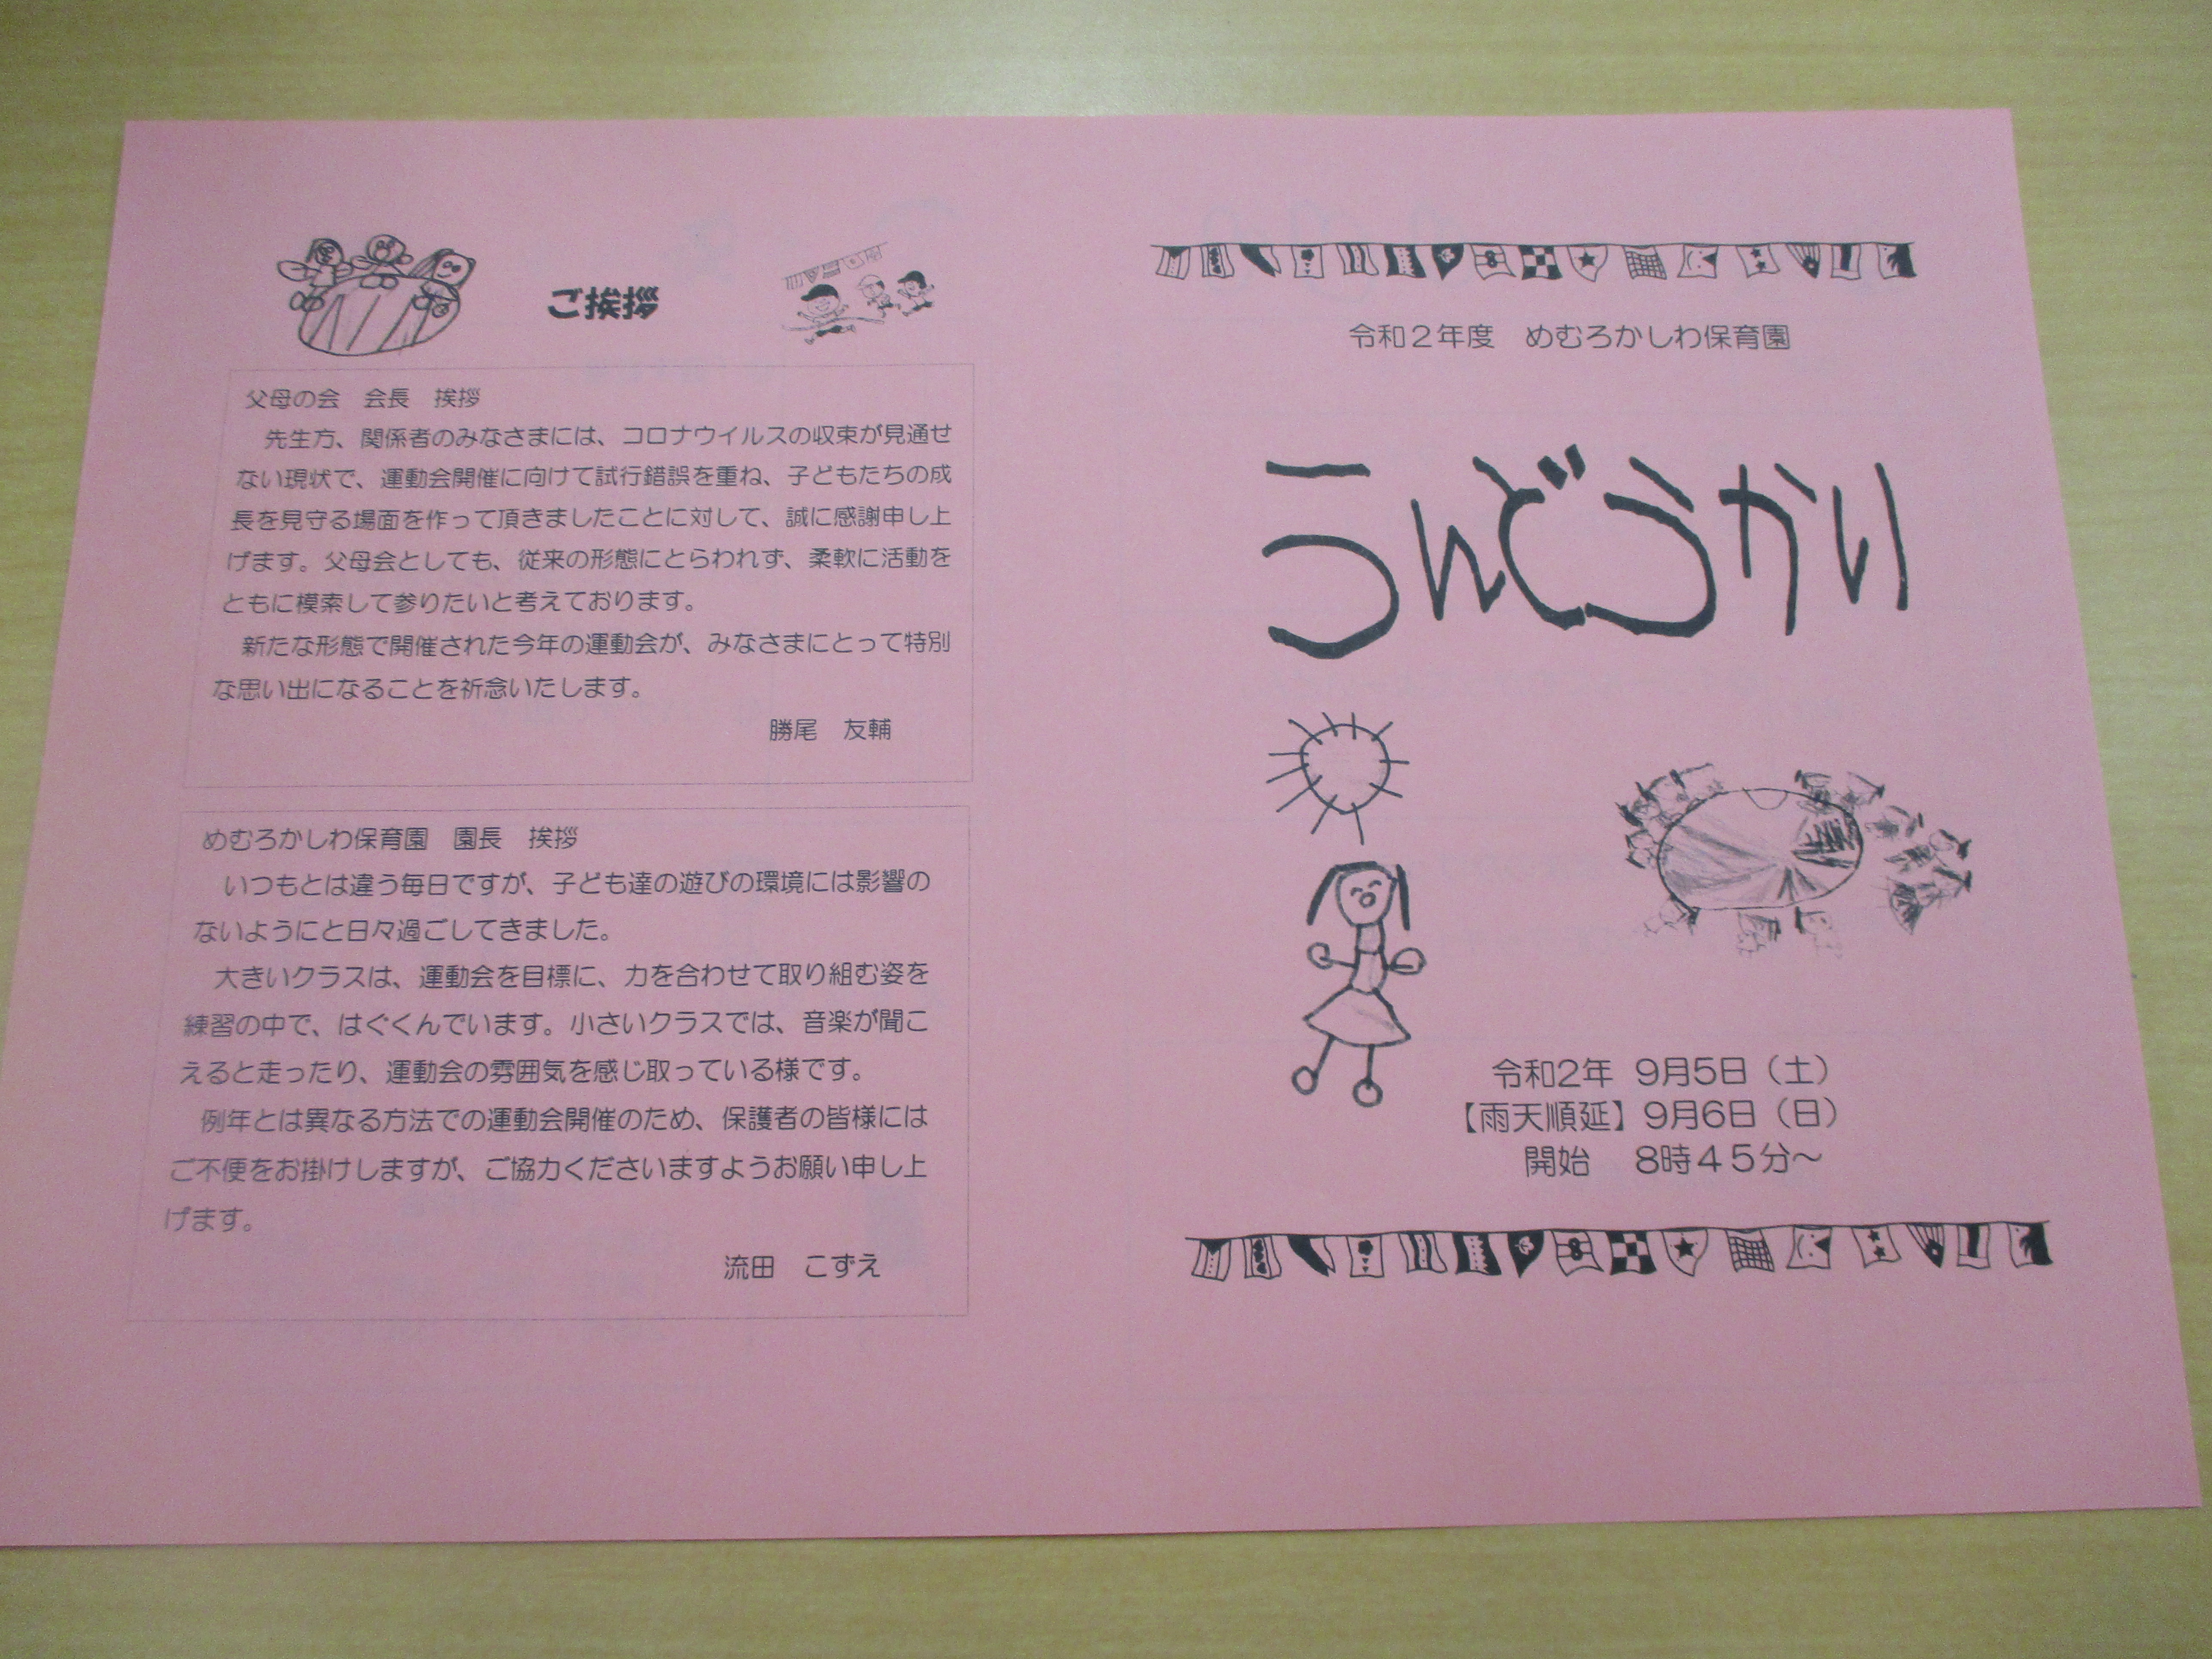 ご挨拶
父母の会　会長　挨拶
先生方、関係者のみなさまには、コロナウイルスの収束が見通せ
ない現状で、運動会開催に向けて試行錯誤を重ね、子どもたちの成
長を見守る場面を作って頂きましたことに対して、誠に感謝申し上
げます。父母会としても、従来の形態にとらわれず、柔軟に活動を
ともに模索して参りたいと考えております。
新たな形態で開催された今年の運動会が、みなさまにとって特別
な思い出になることを祈念いたします。
勝尾　友輔
めむろかしわ保育園　園長　挨拶
いつもとは違う毎日ですが、子ども達の遊びの環境には影響の
ないようにと日々過ごしてきました。
大きいクラスは、運動会を目標に、力を合わせて取り組む姿を
練習の中で、はぐくんでいます。小さいクラスでは、音楽が聞こ
えると走ったり、運動会の雰囲気を感じ取っている様です。
例年とは異なる方法での運動会開催のため、保護者の皆様には
ご不便をお掛けしますが、ご協力くださいますようお願い申し上
げます。
流田　こずえ
令和２年度　めむろかしわ保育園
うんどうかい
令和2年 9月5日（土）
【雨天順延】9月6日（日）
開始　8時４５分～